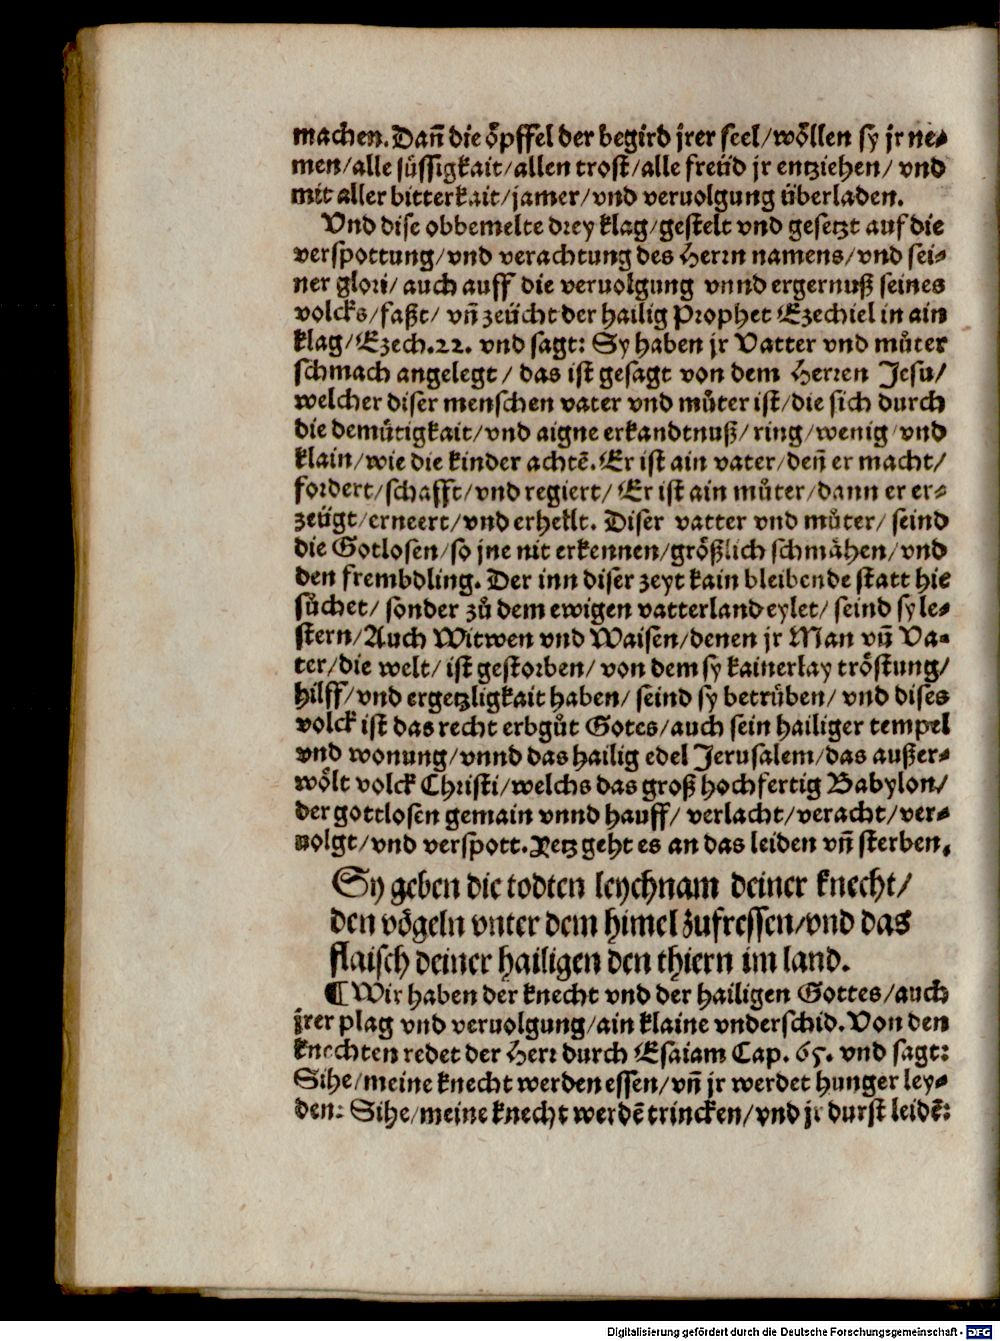 machen. Dañ die öpffel der begird jrer seel/wöllen sy jr ne-
men/alle süssigkait/allen trost/alle freüd jr entziehen/ vnd
mit aller bitterkait/jamer/vnd veruolgung überladen.
Vnd dise obbemelte drey klag/gestelt vnd gesetzt auf die
verspottung/vnd verachtung des Herrn namens/vnd sei-
ner glori/ auch auff die veruolgung vnnd ergernuß seines
volcks/faßt/ vñ zeücht der hailig Prophet Ezechiel in ain
klag/Ezech.22. vnd sagt: Sy haben jr Vatter vnd můter
schmach angelegt/ das ist gesagt von dem Herren Jesu/
welcher diser menschen vater vnd můter ist/die sich durch
die demůtigkait/vnd aigne erkandtnuß/ring/wenig/vnd
klain/wie die kinder achtẽ. Er ist ain vater/deñ er macht/
fordert/schafft/vnd regiert/ Er ist ain můter/dann er er-
zeügt/erneert/vnd erhellt. Diser vatter vnd můter/ seind
die Gotlosen/so jne nit erkennen/größlich schmähen/vnd
den frembdling. Der inn diser zeyt kain bleibende statt hie
sůchet/ sonder zů dem ewigen vatterland eylet/ seind sy le-
stern/Auch Witwen vnd Waisen/denen jr Man vñ Va-
ter/die welt/ ist gestorben/ von dem sy kainerlay tröstung/
hilff/vnd ergetzligkait haben/ seind sy betrüben/ vnd dises
volck ist das recht erbgůt Gotes/auch sein hailiger tempel
vnd wonung/vnnd das hailig edel Jerusalem/das außer-
wölt volck Christi/welchs das groß hochfertig Babylon/
der gottlosen gemain vnnd hauff/ verlacht/veracht/ver-
uolgt/vnd verspott. Yetz geht es an das leiden vñ sterben.
Sy geben die todten leychnam deiner knecht/
den vögeln vnter dem himel zufressen/vnd das
flaisch deiner hailigen den thiern im land.
¶ Wir haben der knecht vnd der hailigen Gottes/auch
jrer plag vnd veruolgung/ain klaine vnderschid. Von den
knechten redet der Herr durch Esaiam Cap. 65. vnd sagt:
Sihe/meine knecht werden essen/vñ jr werdet hunger ley-
den: Sihe/meine knecht werdẽ trincken/vnd jr durst leidẽ:
Digitalisierung gefördert durch die Deutsche Forschungsgemeinschaft - DFG